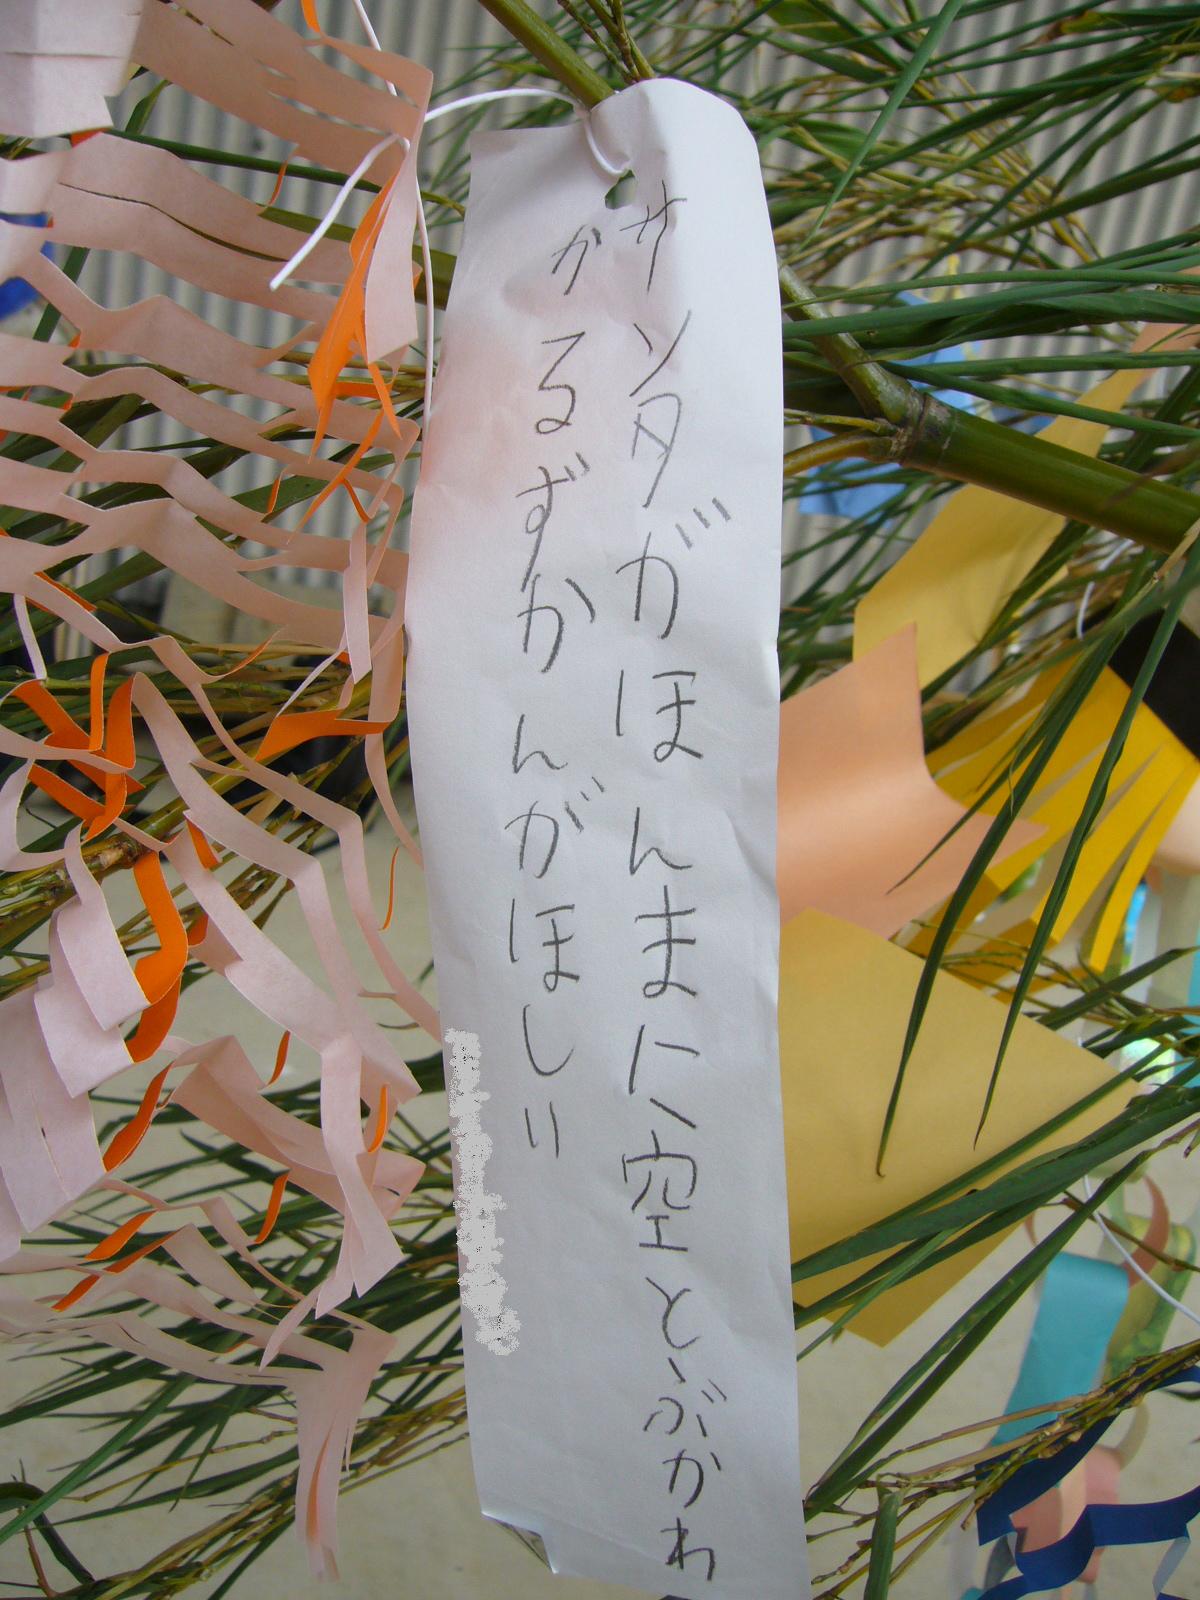 サンタがほんまに空とぶかわ
かるずかんがほしい